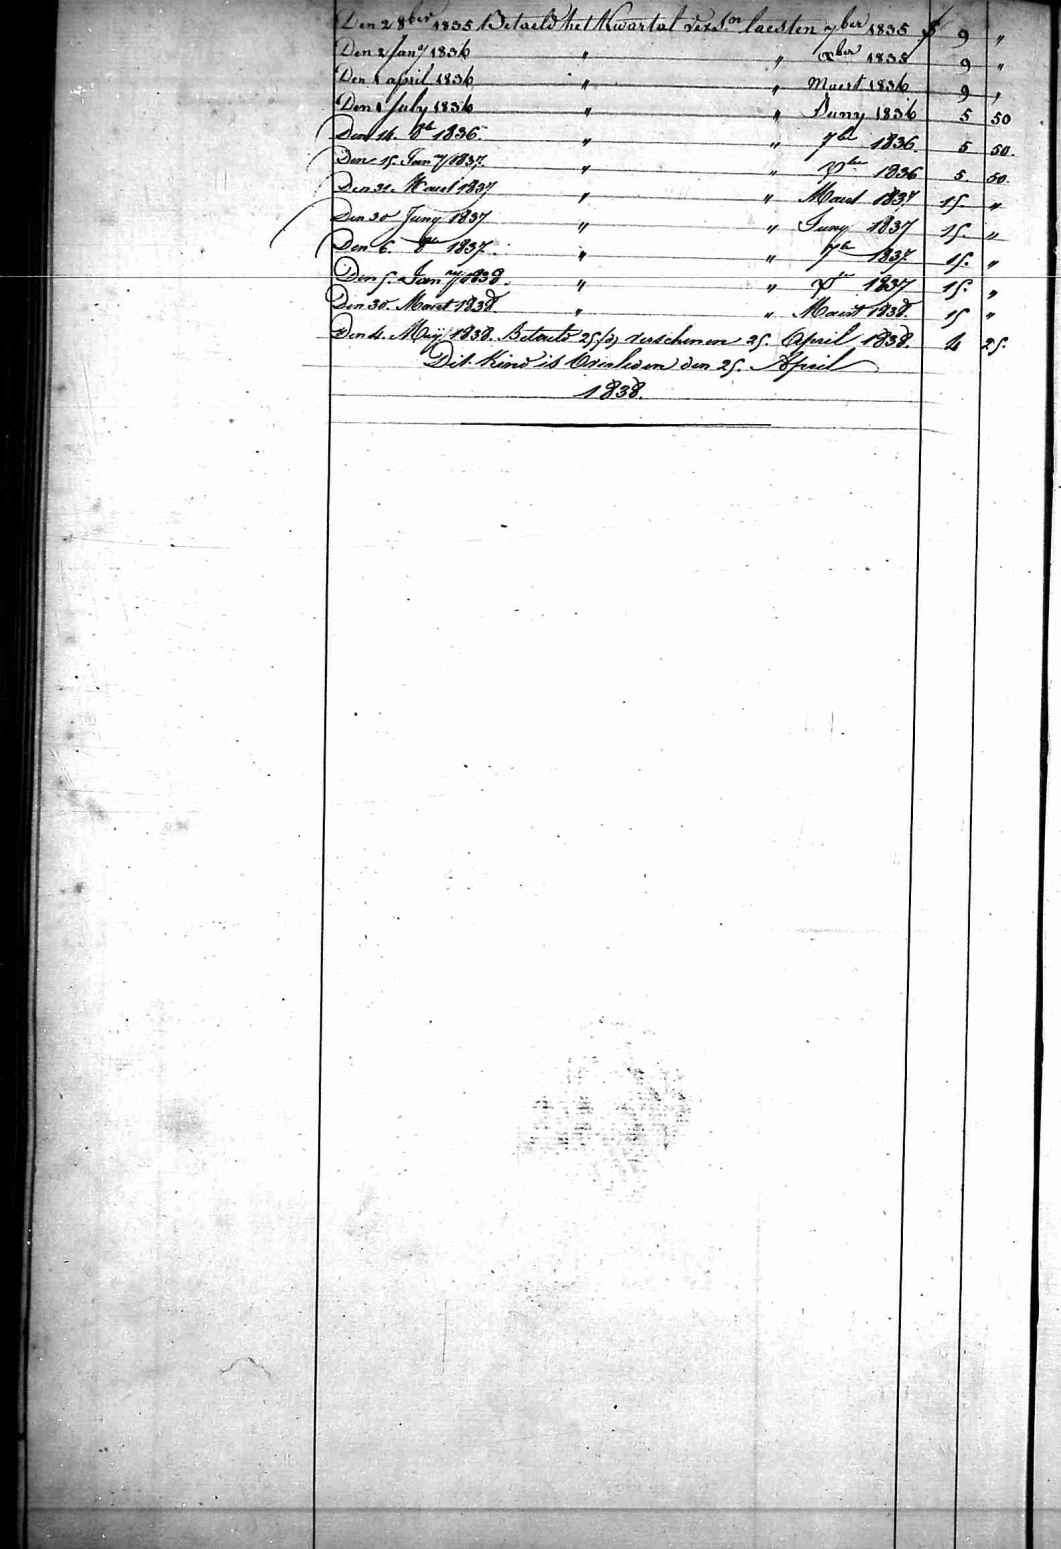 Den 2 8ber 1835 Betaeld het Kwartal vers.en laesten 7ber 1835 f 9 "
Den 2 Jany 1836 " " xber 1835 9 "
Den 1 april 1836 " " Maert 1836 9 "
Den 1 July 1836 " " Juny 1836 5 50
Den 14. 8br 1836 " " 7br 1836. 5 50.
Den 15. Jany 1837 " " xber 1836 5. 50.
Den 31. Maert 1837 " " Maert 1837 15 "
Den 30 Juny 1837 " " Juny 1837 15. "
Den 6. 8br 1837. " " 7br 1837. 15. "
Den 5. Jany 1838. " " xbr 1837 15. "
Den 30. Maert 1838. " " Maert 1838. 15 "
Den 4. Meij 1838. Betaeld 25/d verschenen 25. April 1838. 4 25.
Dit Kind is Overleden den 25. April
1838.